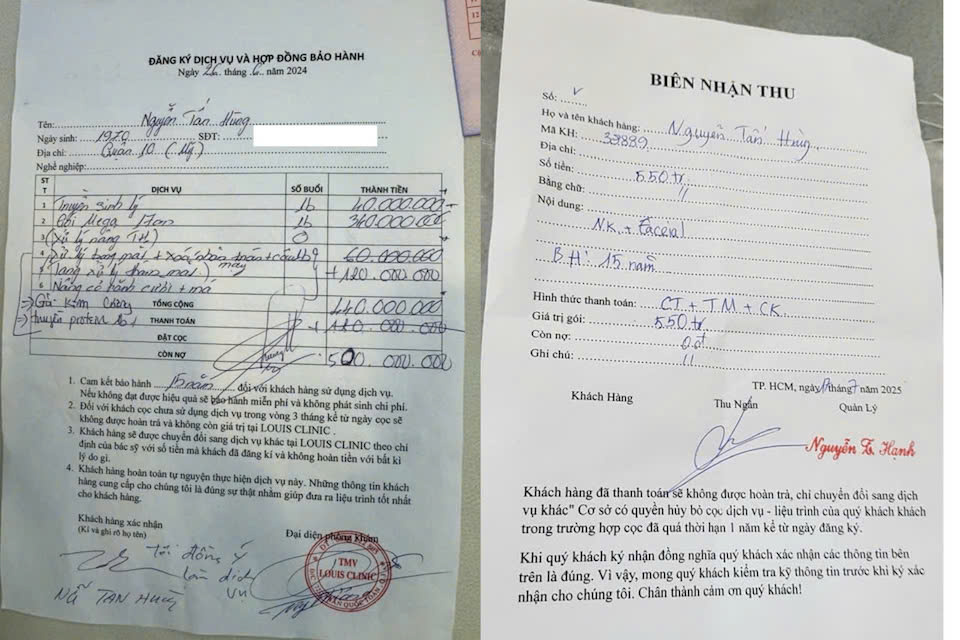 ĐĂNG KÝ DỊCH VỤ VÀ HỢP ĐỒNG BẢO HÀNH
Ngày 26 tháng 6 năm 2024
Tên: Nguyễn Tấn Hùng
Ngày sinh: 1970 SĐT:
Địa chỉ: Quận 10 (Mỹ)
Nghề nghiệp:
STT DỊCH VỤ SỐ BUỔI THÀNH TIỀN
1 Truyền sinh lý 1b 40.000.000
2 Mega 17cm 1b 340.000.000
3 (Xử lý
4 xử lý + xóa nhăn trán + 60.000.000
5 xử lý +120.000.000
6 Nâng cơ rãnh cười + má
TỔNG CỘNG 440.000.000
THANH TOÁN
ĐẶT CỌC
CÒN NỢ 500.000.000
1. Cam kết bảo hành 15 năm đối với khách hàng sử dụng dịch vụ.
Nếu không đạt được hiệu quả sẽ bảo hành miễn phí và không phát sinh chi phí.
2. Đối với khách cọc chưa sử dụng dịch vụ trong vòng 3 tháng kể từ ngày cọc sẽ
không được hoàn trả và không còn giá trị tại LOUIS CLINIC .
3. Khách hàng sẽ được chuyển đổi sang dịch vụ khác tại LOUIS CLINIC theo chỉ
định của bác sỹ với số tiền mà khách đã đăng kí và không hoàn tiền với bất kì
lý do gì.
4. Khách hàng hoàn toàn tự nguyện thực hiện dịch vụ này. Những thông tin khách
hàng cung cấp cho chúng tôi là đúng sự thật nhằm giúp đưa ra liệu trình tốt nhất
cho khách hàng.
Khách hàng xác nhận
(Kí và ghi rõ họ tên)
Đại diện phòng khám
Tôi đồng ý
làm dịch
vụ
TAN HUNG
TMV
LOUIS CLINIC
BIÊN NHẬN THU
Số:
Họ và tên khách hàng: Nguyễn Tấn Hùng
Mã KH: 39889
Địa chỉ:
Số tiền: 550 tr
Bằng chữ: //
Nội dung:
NK + Facial
BH: 15 năm
Hình thức thanh toán: CT + TM + CK
Giá trị gói: 550 tr
Còn nợ: 0đ
Ghi chú: //
TP. HCM, ngày tháng 7 năm 2025
Khách Hàng Thu Ngân Quản Lý
Nguyễn T. Hạnh
Khách hàng đã thanh toán sẽ không được hoàn trả, chỉ chuyển đổi sang dịch
vụ khác" Cơ sở có quyền hủy bỏ cọc dịch vụ - liệu trình của quý khách khách
trong trường hợp cọc đã quá thời hạn 1 năm kể từ ngày đăng ký.
Khi quý khách ký nhận đồng nghĩa quý khách xác nhận các thông tin bên
trên là đúng. Vì vậy, mong quý khách kiểm tra kỹ thông tin trước khi ký xác
nhận cho chúng tôi. Chân thành cảm ơn quý khách!